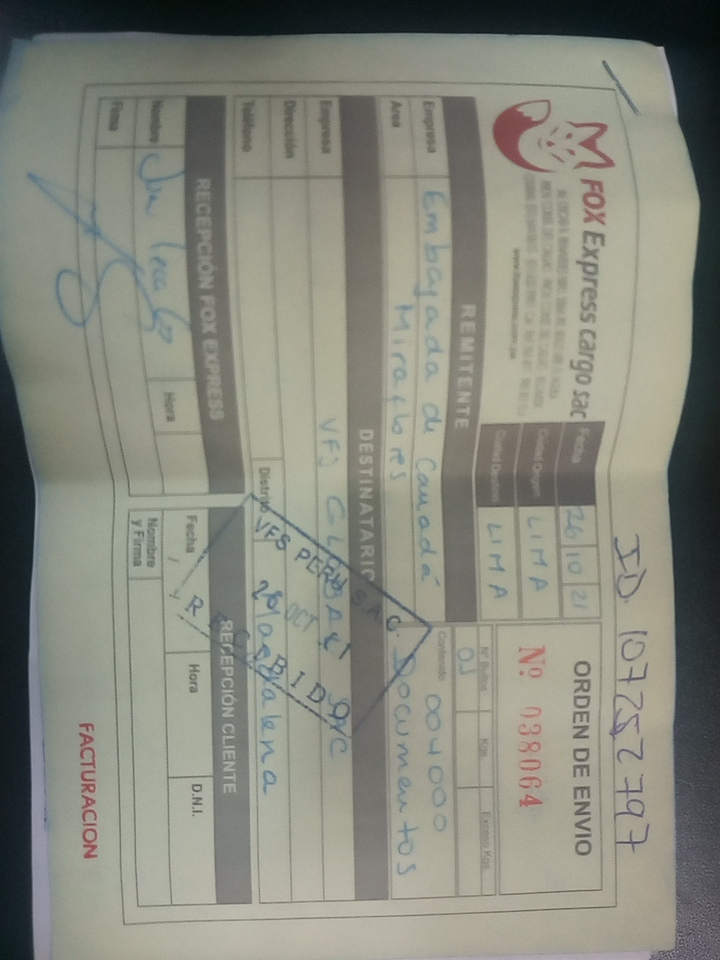 ID. 107252797
FOX Express cargo sac
Fecha 26 10 21
Ciudad Origen LIMA
Ciudad Destino LIMA
ORDEN DE ENVIO
Nº 038064
REMITENTE
Nº Bultos Kgs. Exceso Kgs.
01
Empresa Embajada de Canadá
Contenido 004000
Area Miraflores
Documentos
DESTINATARIO
Empresa VFS GLOBAL SVC
Dirección
Teléfono
Distrito Magdalena
VFS PERU S.A.C.
26 OCT 21
RECIBIDO
RECEPCIÓN FOX EXPRESS
Nombre
Hora
Firma
RECEPCIÓN CLIENTE
Fecha / / Hora D.N.I.
Nombre
y Firma
FACTURACION